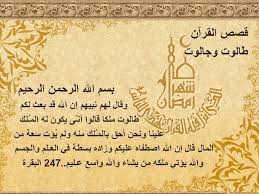 قصص القرآن
طالوت وجالوت
بسم الله الرحمن الرحيم
وقال لهم نبيهم إن الله قد بعث لكم
طالوت ملكا قالوا أنّى يكون له المُلك
علينا ونحن أحق بالمُلك منه ولم يُؤت سعة من
المال قال إن الله اصطفاه عليكم وزاده بسطة في العلم والجسم
والله يؤتي ملكه من يشاء والله واسع عليم..247 البقرة
شهر
رمضان